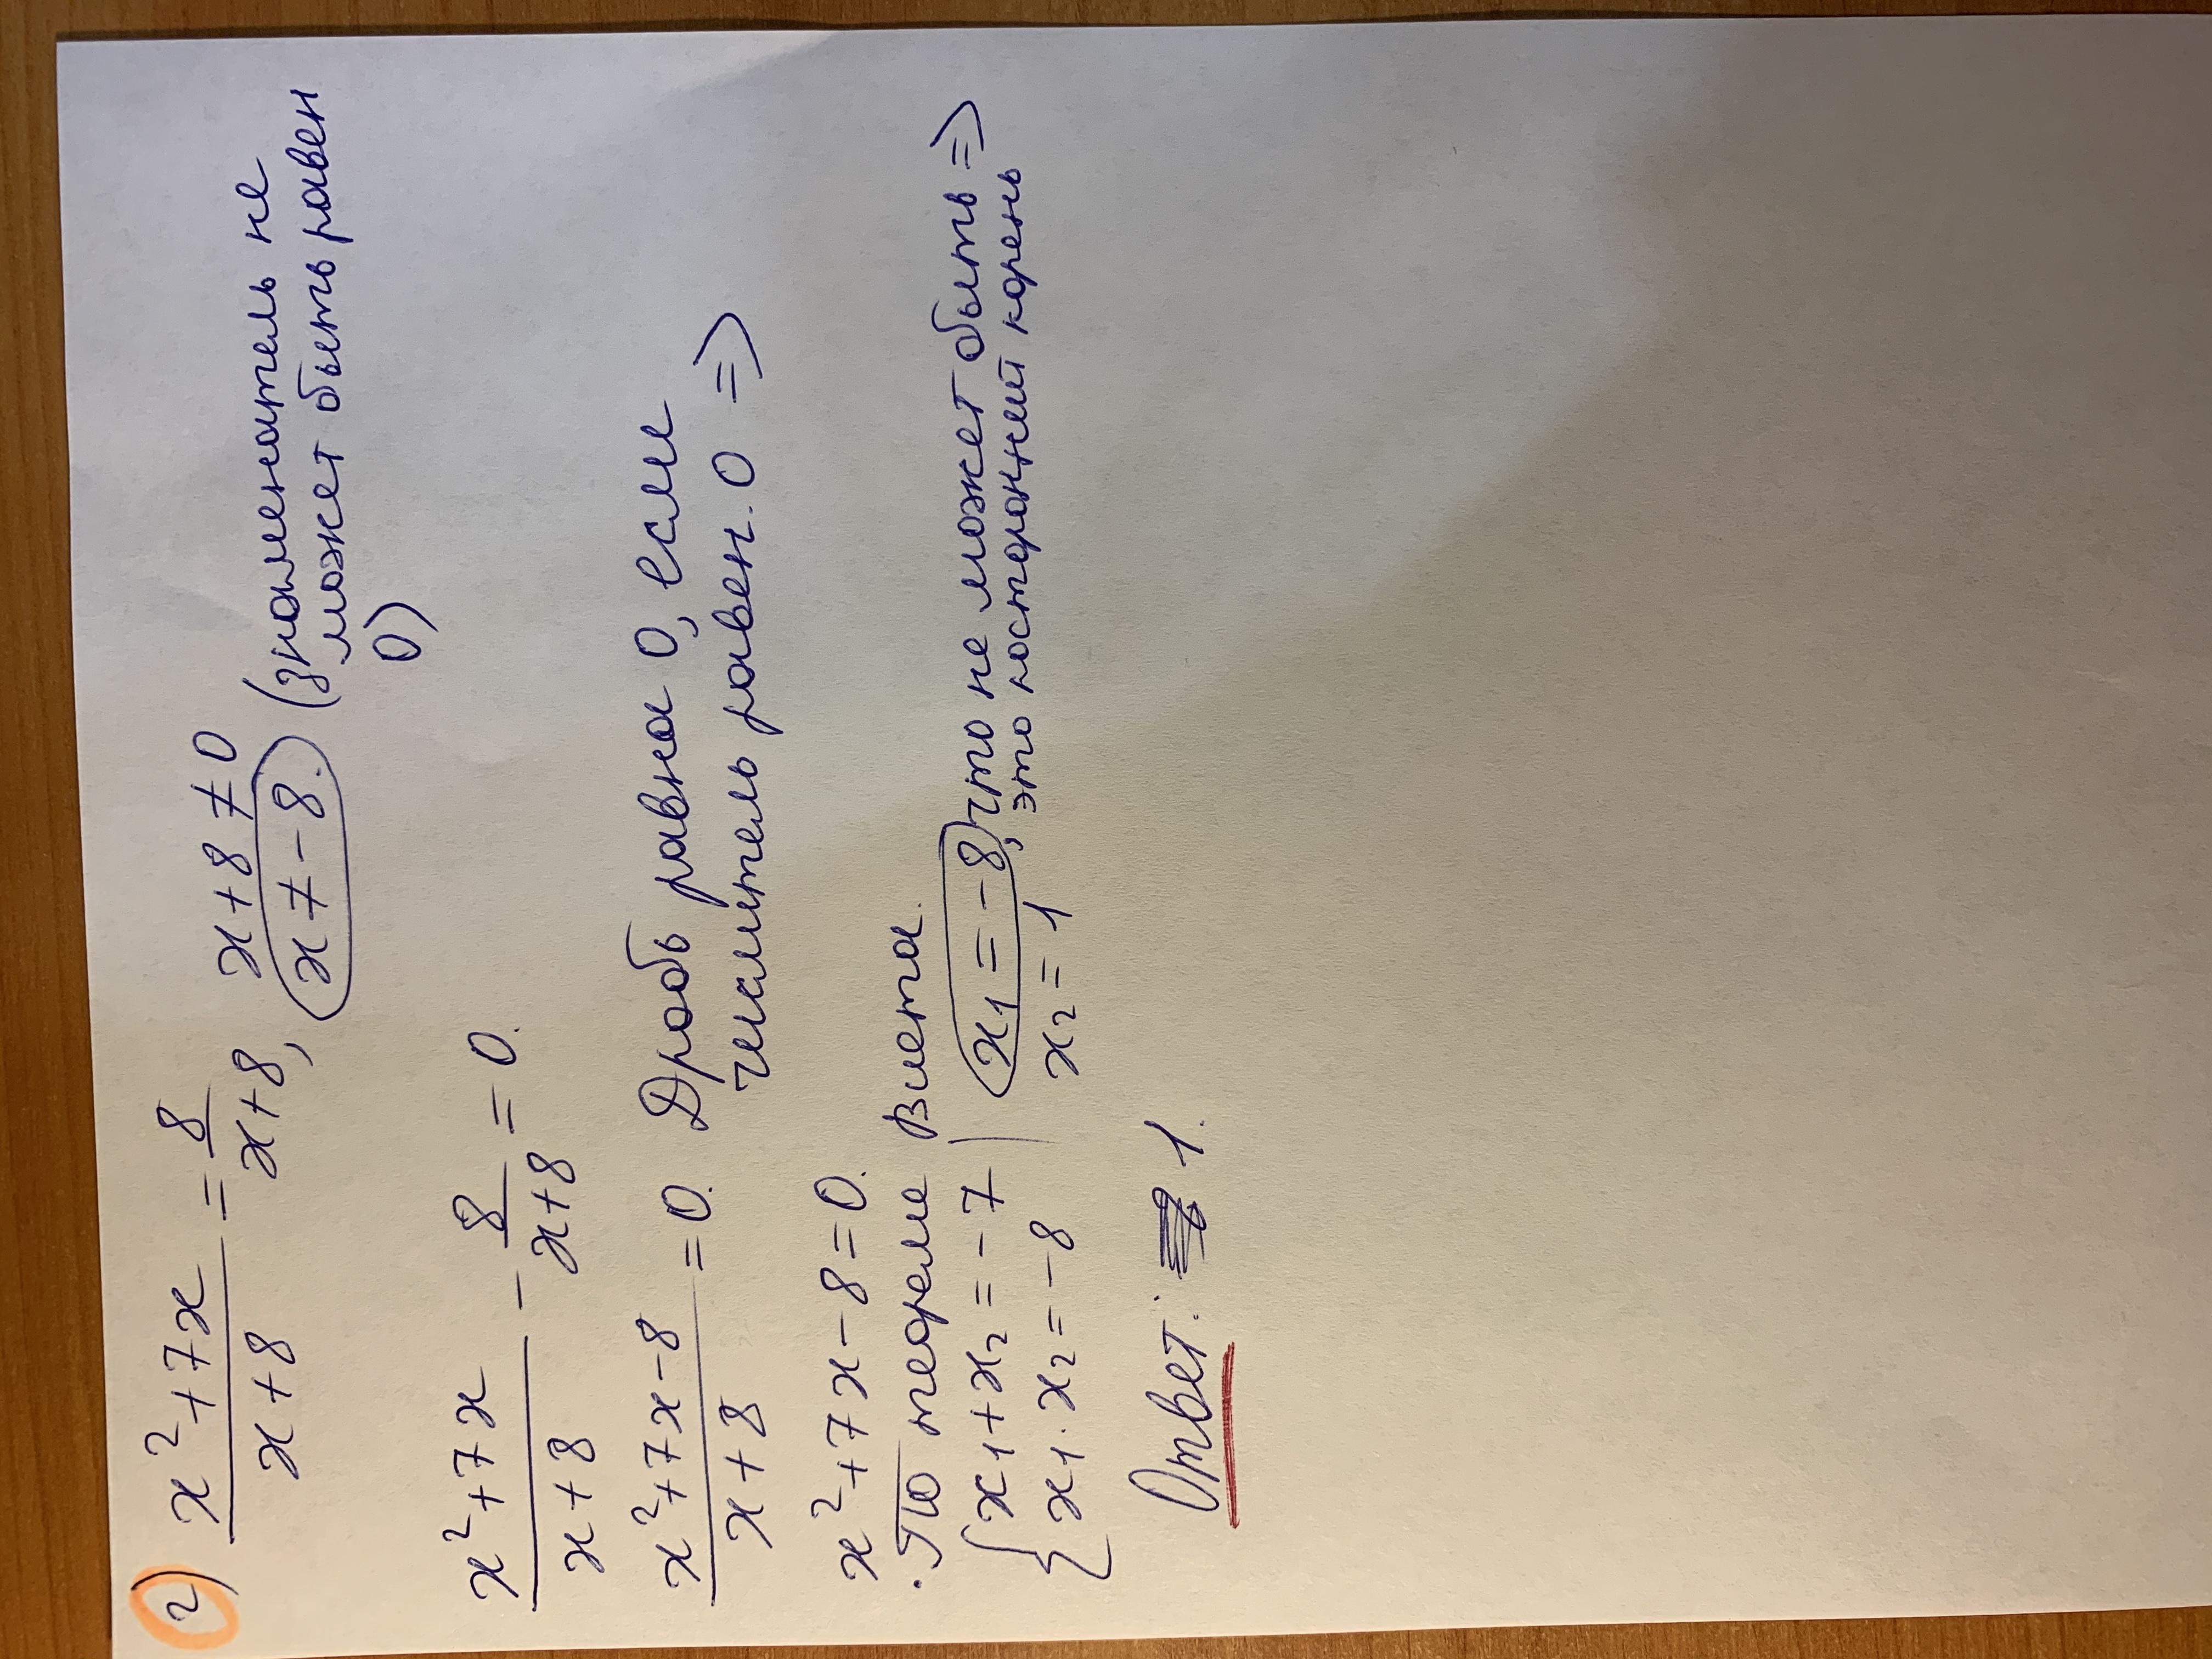 2) (x²+7x)/(x+8) = 8/(x+8), x+8≠0
x≠-8. (знаменатель не
может быть равен
0)
(x²+7x)/(x+8) - 8/(x+8) = 0.
(x²+7x-8)/(x+8) = 0. Дробь равна 0, если
числитель равен 0 =>
x²+7x-8=0.
По теореме Виета.
{x₁+x₂=-7 | x₁=-8, что не может быть =>
x₁·x₂=-8 x₂=1 это посторонний корень
Ответ: 1.